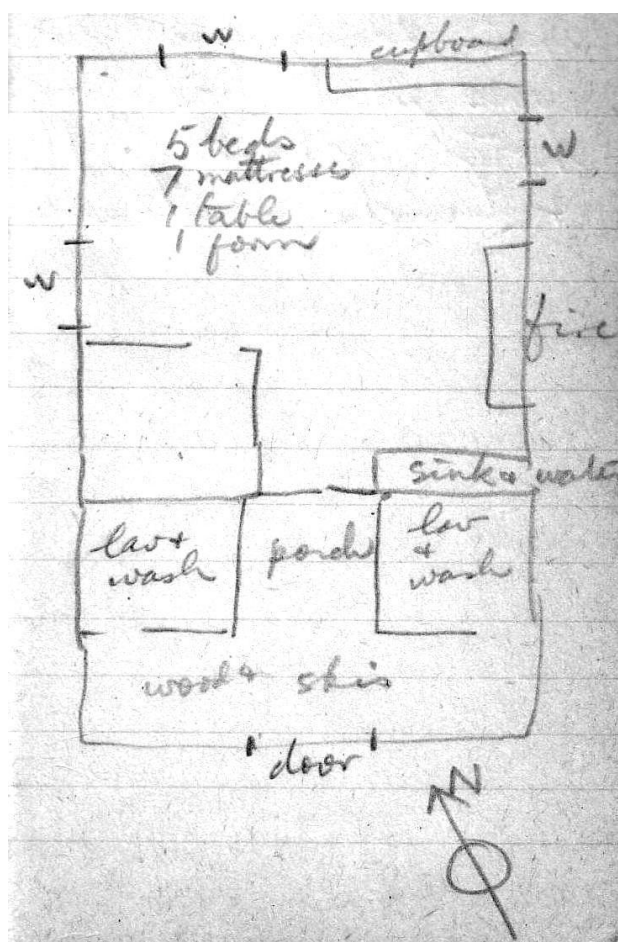 W
cupboard
W
5 beds
7 mattresses
1 table
1 form
W
fire
sink & wate
lav &
wash
porch
lav
&
wash
wood & skis
door
N